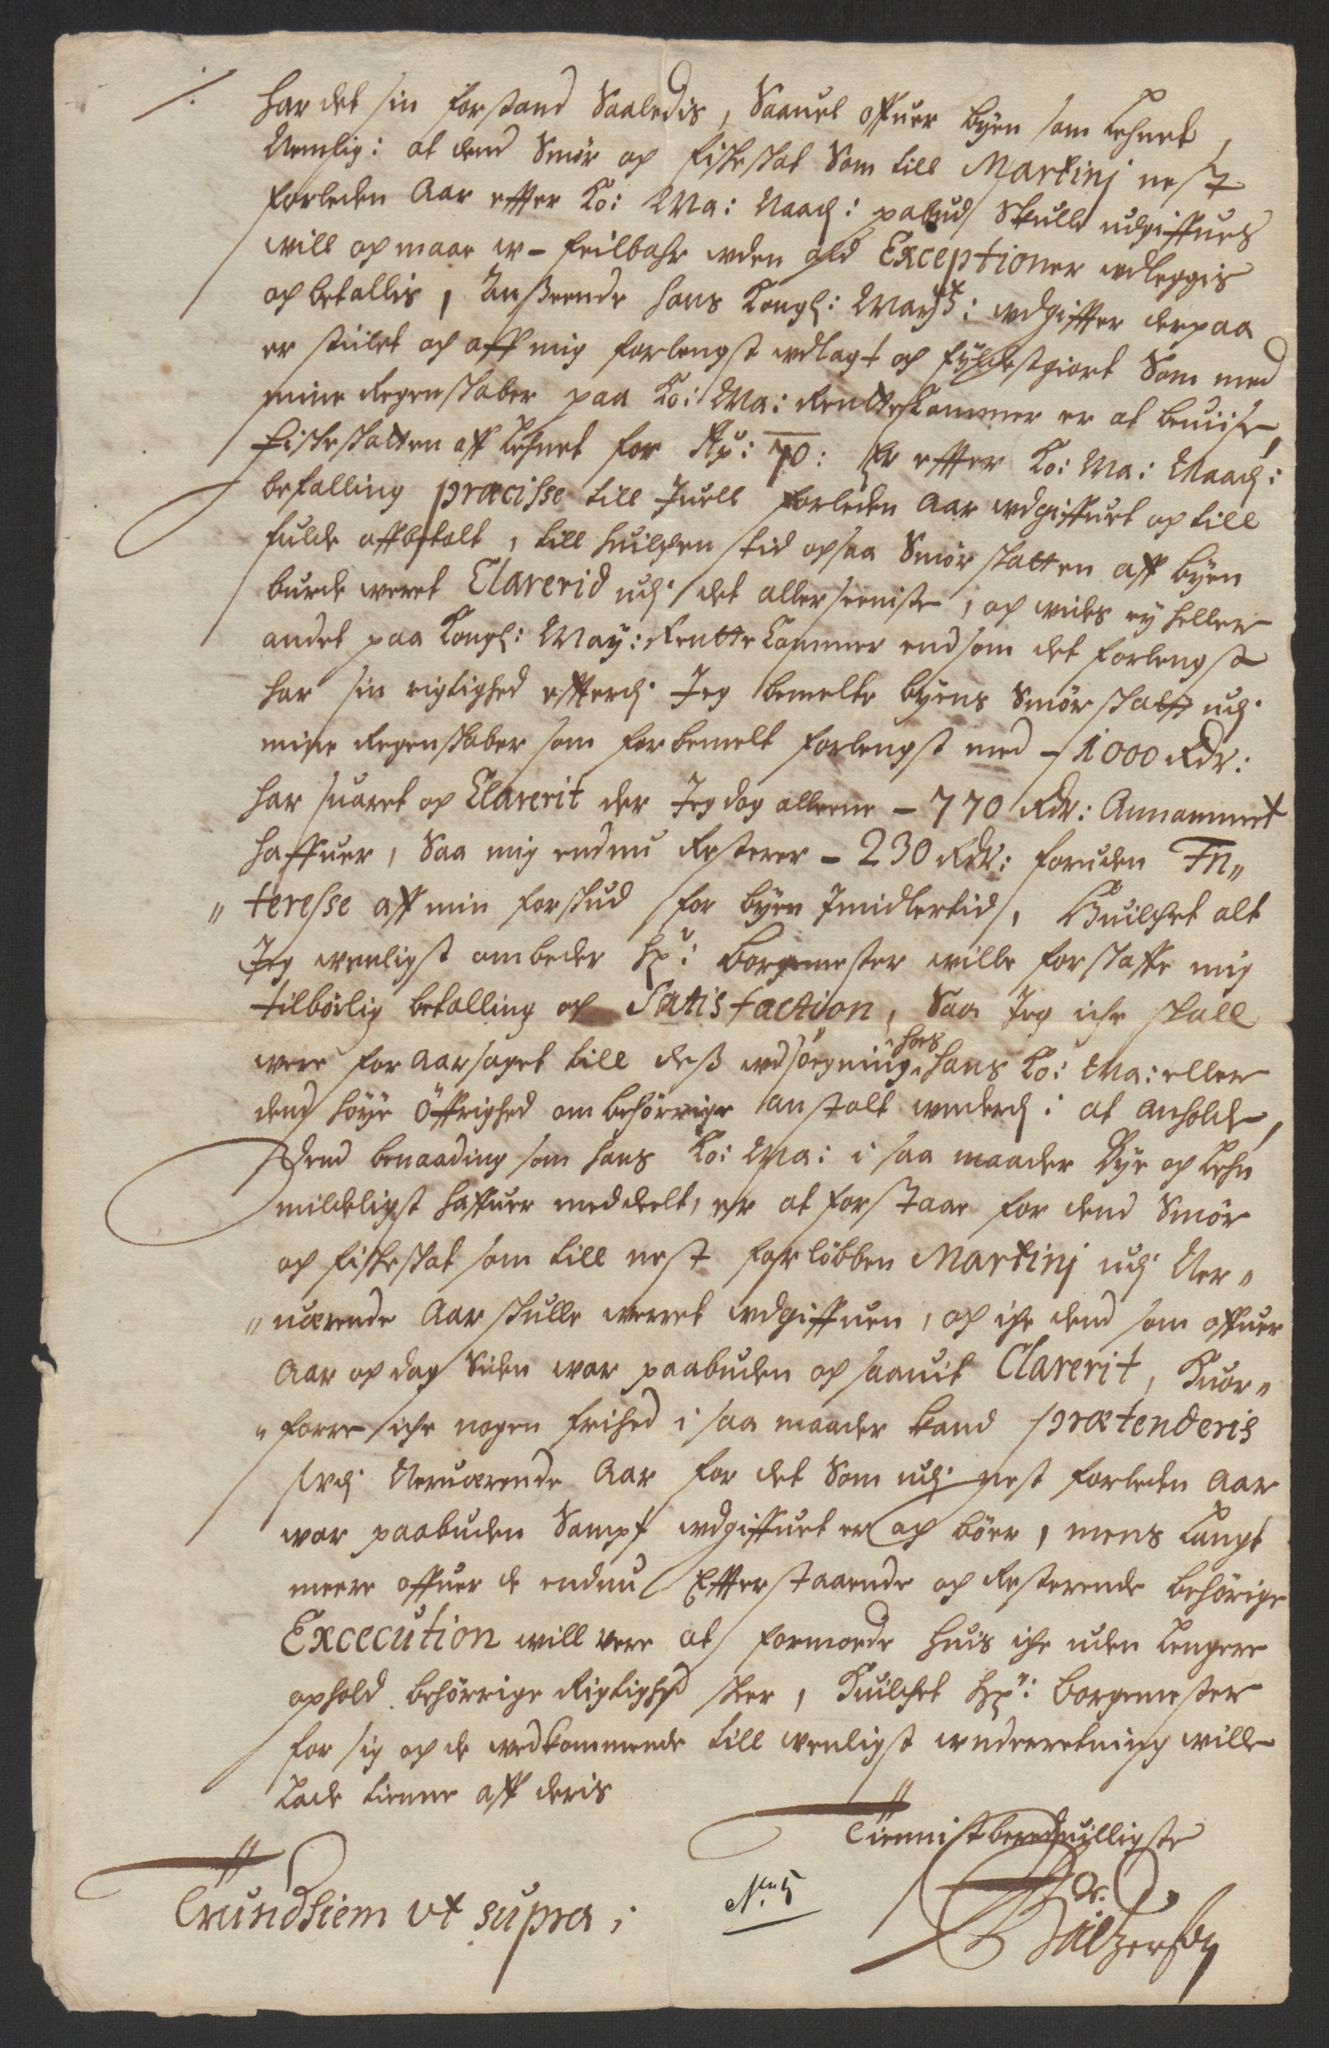 /. Har det sin forstand Saaledis, Saauel offuer byen som Lehnet,
Nemlig: at dend Smør og fiskeskat Som till Martinj nest
forleden Aar effter Ko: Ma: Naad: paabud Skulle udgiffues
will og maae w-feilbahr uden ald Exceptioner udleggis
och betallis, Anseende hans Kongl: Mayst: udgiffter derpaa
er stiilet och aff mig forlengst udlagt och fyldestgiort Som med
mine Regenskaber paa Ko: Ma: Renttekammer er at beuiise,
Fiskeskatten aff Lehnet for 70: Er effter Ko: Ma: Naad:
befalling præcisse till Juell forleden Aar udgiffuet og till
fulde affbetalt, till huilchen tid ogsaa Smør skatten aff byen
burde weret Clarerid udj det allerseeniste, og wides ey heller
andet paa Kongl: May: Rentte Kammer end som det forlengst
har sin rigtighed effterdj Jeg bemelte byens Smør skatt udj
mine Regenskaber som forbemelt forlengst med - 1000 Rdr:
har suaret og Clarerit der Jeg dog alleene - 770 Rdr: Annammet
haffuer, Saa mig endnu Resterer - 230 Rdr: foruden In„
„teresse aff min forskud for byen Imidlertid, Huilchet alt
Jeg wenligst ombeder Hr: Borgemester wille forskaffe mig
tilbørlig betalling och Satisfaction, Saa Jeg iche skall
were foraarsaget till deß udsøegning hos hans Ko: Ma: eller
dend høye Øffrighed om behørrige anstalt wnderd: at anholde,
Dend benaading som hans Ko: Ma: i saa maader Bye og Lehn
mildeligst haffuer meddeelt, er at forstaae for dend Smør
och fiskeskat som till nest forløbben Martinj udj Ner„
„uærende Aar skulle werret udgiffuen, och iche dend som offuer
Aar og dag Siden war paabuden og saauit Clarerit, Huor„
„forre iche nogen frihed i saa maader kand prætenderis
udj Neruærende Aar for det Som udj nest forleden Aar
war paabuden Sampt udgiffuet er og bøer, mens Langt
meere offuer de endnu Effterstaaende og Resterende behørige
Excecution will vere at formoede huis iche uden Lengere
ophold behørrige Rigtighed skeer, Huilchet Hr: borgemester
for sig og de wedkommende till wenligst wnderretning wille
Lade tienne aff deris
Tiennistberedwilligste
Trundhiem ut supra;
No. 5